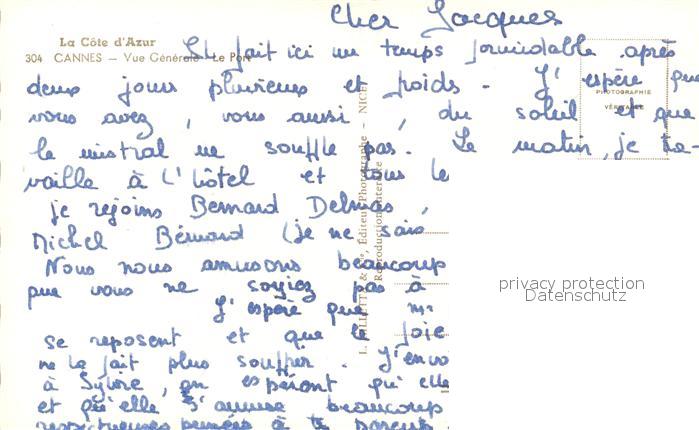 Cher Jacques
La Côte d'Azur
304 CANNES — Vue Générale Le Port
Il fait ici un temps formidable après
deux jours pluvieux et froids. J'espère que
PHOTOGRAPHIE
VÉRITABLE
vous avez, vous aussi, du soleil et que
le mistral ne souffle pas. Le matin, je tra-
vaille à l'hôtel et tous le
je rejoins Bernard Delmas,
Michel Bénard (je ne sais
Nous nous amusons beaucoup
que vous ne soyiez pas à
J'espère que
se reposent et que le foie
ne la fait plus souffrir. J'envo
à Sylvie, en espérant qu'elle
et qu'elle s'amuse beaucoup
respectueuses pensées à te parents
& Cie, Éditeur Photographe - NICE
Reproduction interdite
privacy protection
Datenschutz